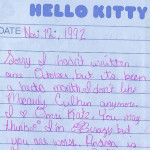 HELLO KITTY
DATE Nov. 12, 1992
Sorry I hadn't written
since October but its been
a hectic month. I don't like
anymore
I ♡ Omri Katz. You may
think I'm crazy but
you are wrong.